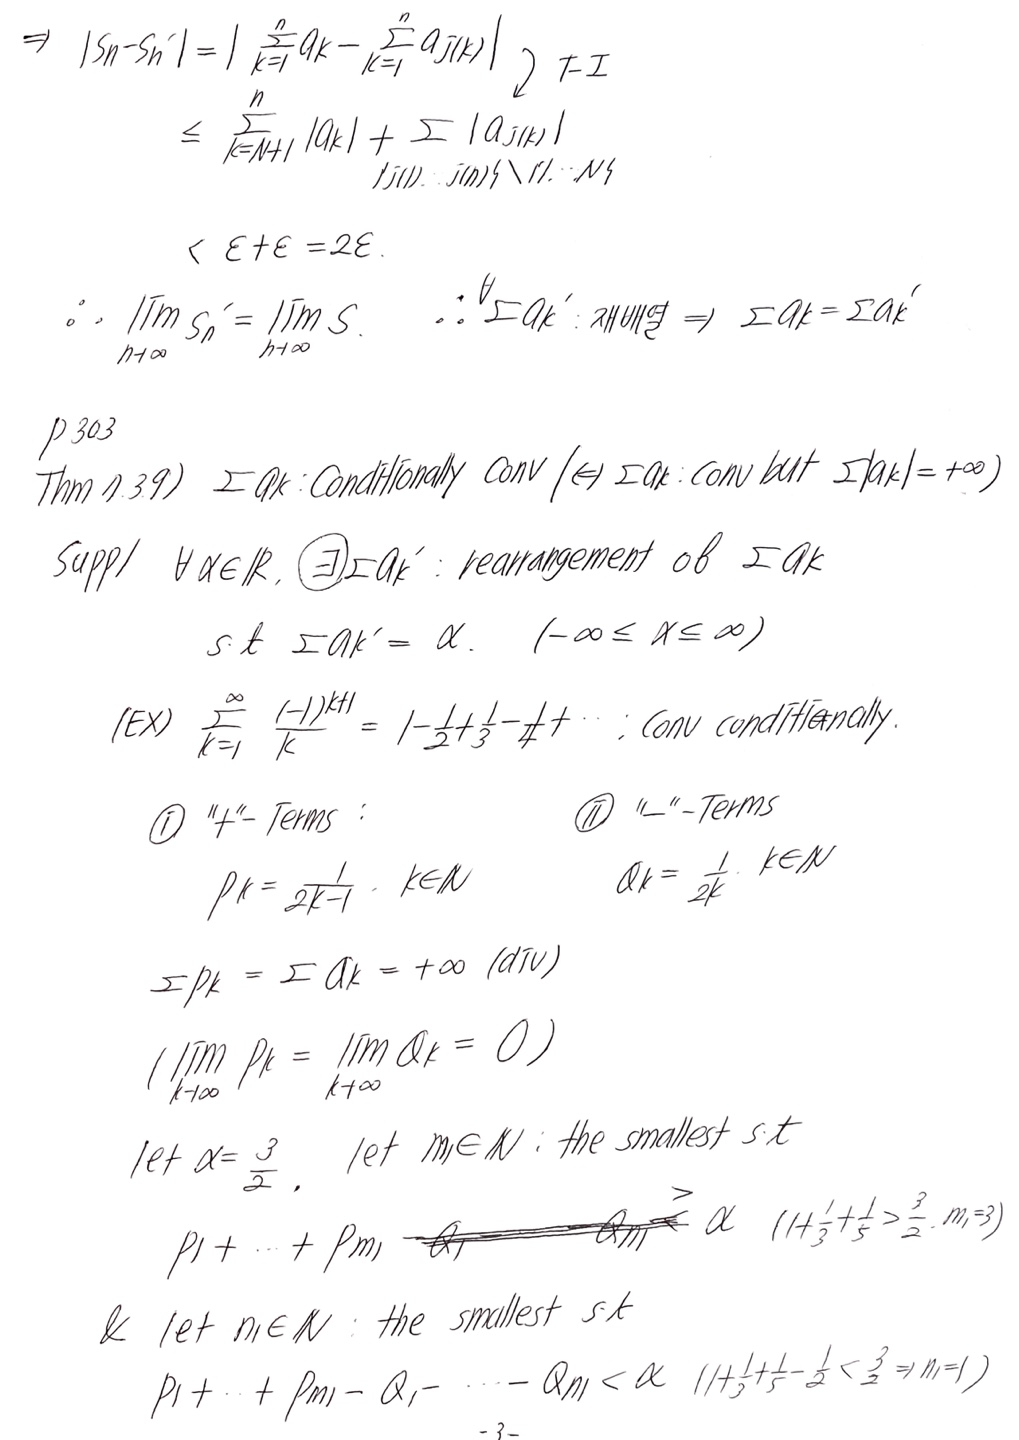 ⇒ |Sn-Sn'| = | Σ_{k=1}^{n} ak - Σ_{k=1}^{n} aj(k) | ⤵ T-I
≤ Σ_{k=N+1}^{n} |ak| + Σ_{{j(1)...j(n)}\{1...N}} |aj(k)|
< ε+ε = 2ε.
∴ lim_{n→∞} Sn' = lim_{n→∞} S. ∴ ∀Σak' : 재배열 ⇒ Σak = Σak'
p 303
Thm 7.3.9) Σak : Conditionally conv (⇔ Σak : conv but Σ|ak| = +∞)
Supp/ ∀α∈ℝ, ∃Σak' : rearrangement of Σak
s.t Σak' = α. (-∞ ≤ α ≤ ∞)
(EX) Σ_{k=1}^{∞} (-1)^{k+1}/k = 1-1/2+1/3-1/4+ ... ; conv conditionally.
ⓘ "+"- Terms : ⓘⓘ "-"-Terms
Pk = 1/(2k-1) . k∈ℕ Qk = 1/2k . k∈ℕ
Σpk = ΣQk = +∞ (div)
( lim_{k→∞} Pk = lim_{k→∞} Qk = 0 )
let α = 3/2 , let m1∈ℕ : the smallest s.t
P1 + ... + Pm1 > α (1+1/3+1/5 > 3/2 . m1=3)
& let n1∈ℕ : the smallest s.t
P1 + ... + Pm1 - Q1 - ... - Qn1 < α (1+1/3+1/5-1/2 < 3/2 ⇒ n1=1)
- 3 -